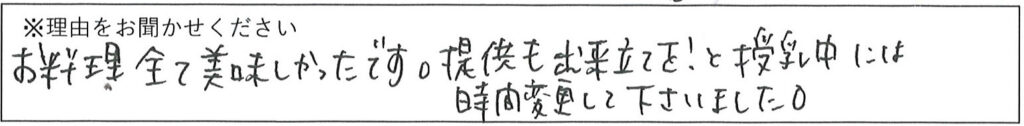 ※理由をお聞かせください
お料理全て美味しかったです。提供も出来立てを!と授乳中には
時間変更して下さいました。